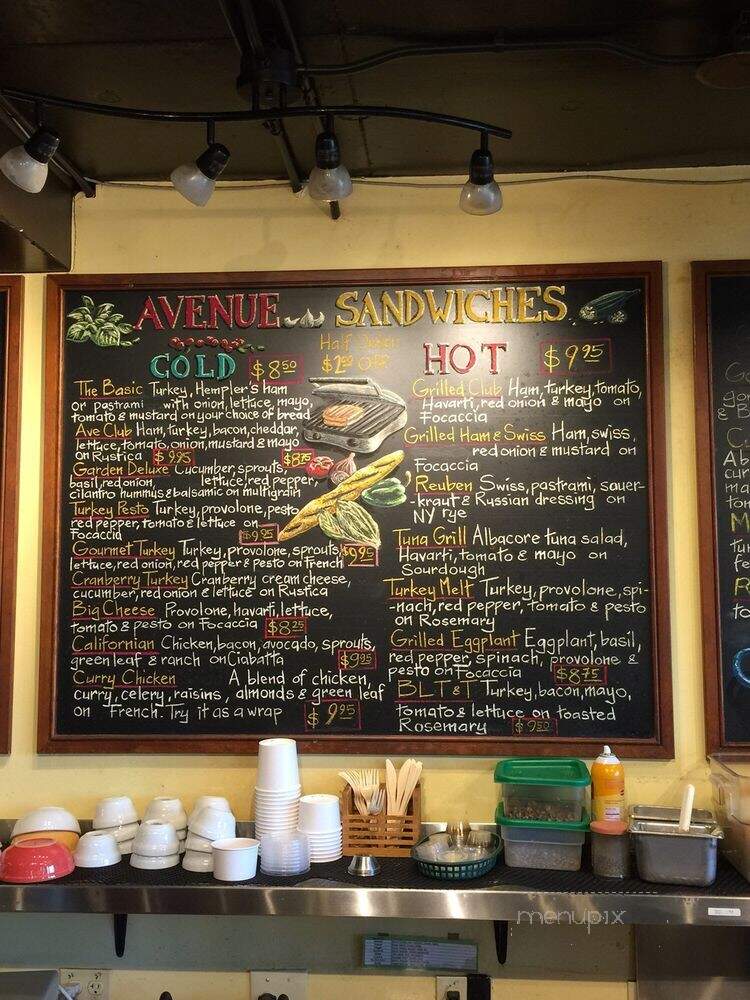 AVENUE SANDWICHES
COLD $8.50
Half
$2.00 OFF
HOT $9.25
The Basic Turkey, Hempler's ham
or pastrami with onion, lettuce, mayo,
tomato & mustard on your choice of bread
Ave Club Ham, turkey, bacon, cheddar,
lettuce, tomato, onion, mustard & mayo
on Rustica $9.95
Garden Deluxe Cucumber, sprouts, $8.75
basil, red onion, lettuce, red pepper,
cilantro hummus & balsamic on multigrain
Turkey Pesto Turkey, provolone, pesto
red pepper, tomato & lettuce on
Focaccia $9.95
Gourmet Turkey Turkey, provolone, sprouts, $9.95
lettuce, red onion, red pepper & pesto on French
Cranberry Turkey Cranberry cream cheese,
cucumber, red onion & lettuce on Rustica
Big Cheese Provolone, havarti, lettuce,
tomato & pesto on Focaccia $8.25
Californian Chicken, bacon, avocado, sprouts,
green leaf & ranch on Ciabatta $9.95
Curry Chicken A blend of chicken,
curry, celery, raisins, almonds & green leaf
on French. Try it as a wrap $9.95
Grilled Club Ham, turkey, tomato,
Havarti, red onion & mayo on
Focaccia
Grilled Ham & Swiss Ham, swiss,
red onion & mustard on
Focaccia
Reuben Swiss, pastrami, sauer-
-kraut & Russian dressing on
NY rye
Tuna Grill Albacore tuna salad,
Havarti, tomato & mayo on
Sourdough
Turkey Melt Turkey, provolone, spi-
-nach, red pepper, tomato & pesto
on Rosemary
Grilled Eggplant Eggplant, basil,
red pepper, spinach, provolone &
pesto on Focaccia $8.75
BLT & T Turkey, bacon, mayo,
tomato & lettuce on toasted
Rosemary $9.50
menupix